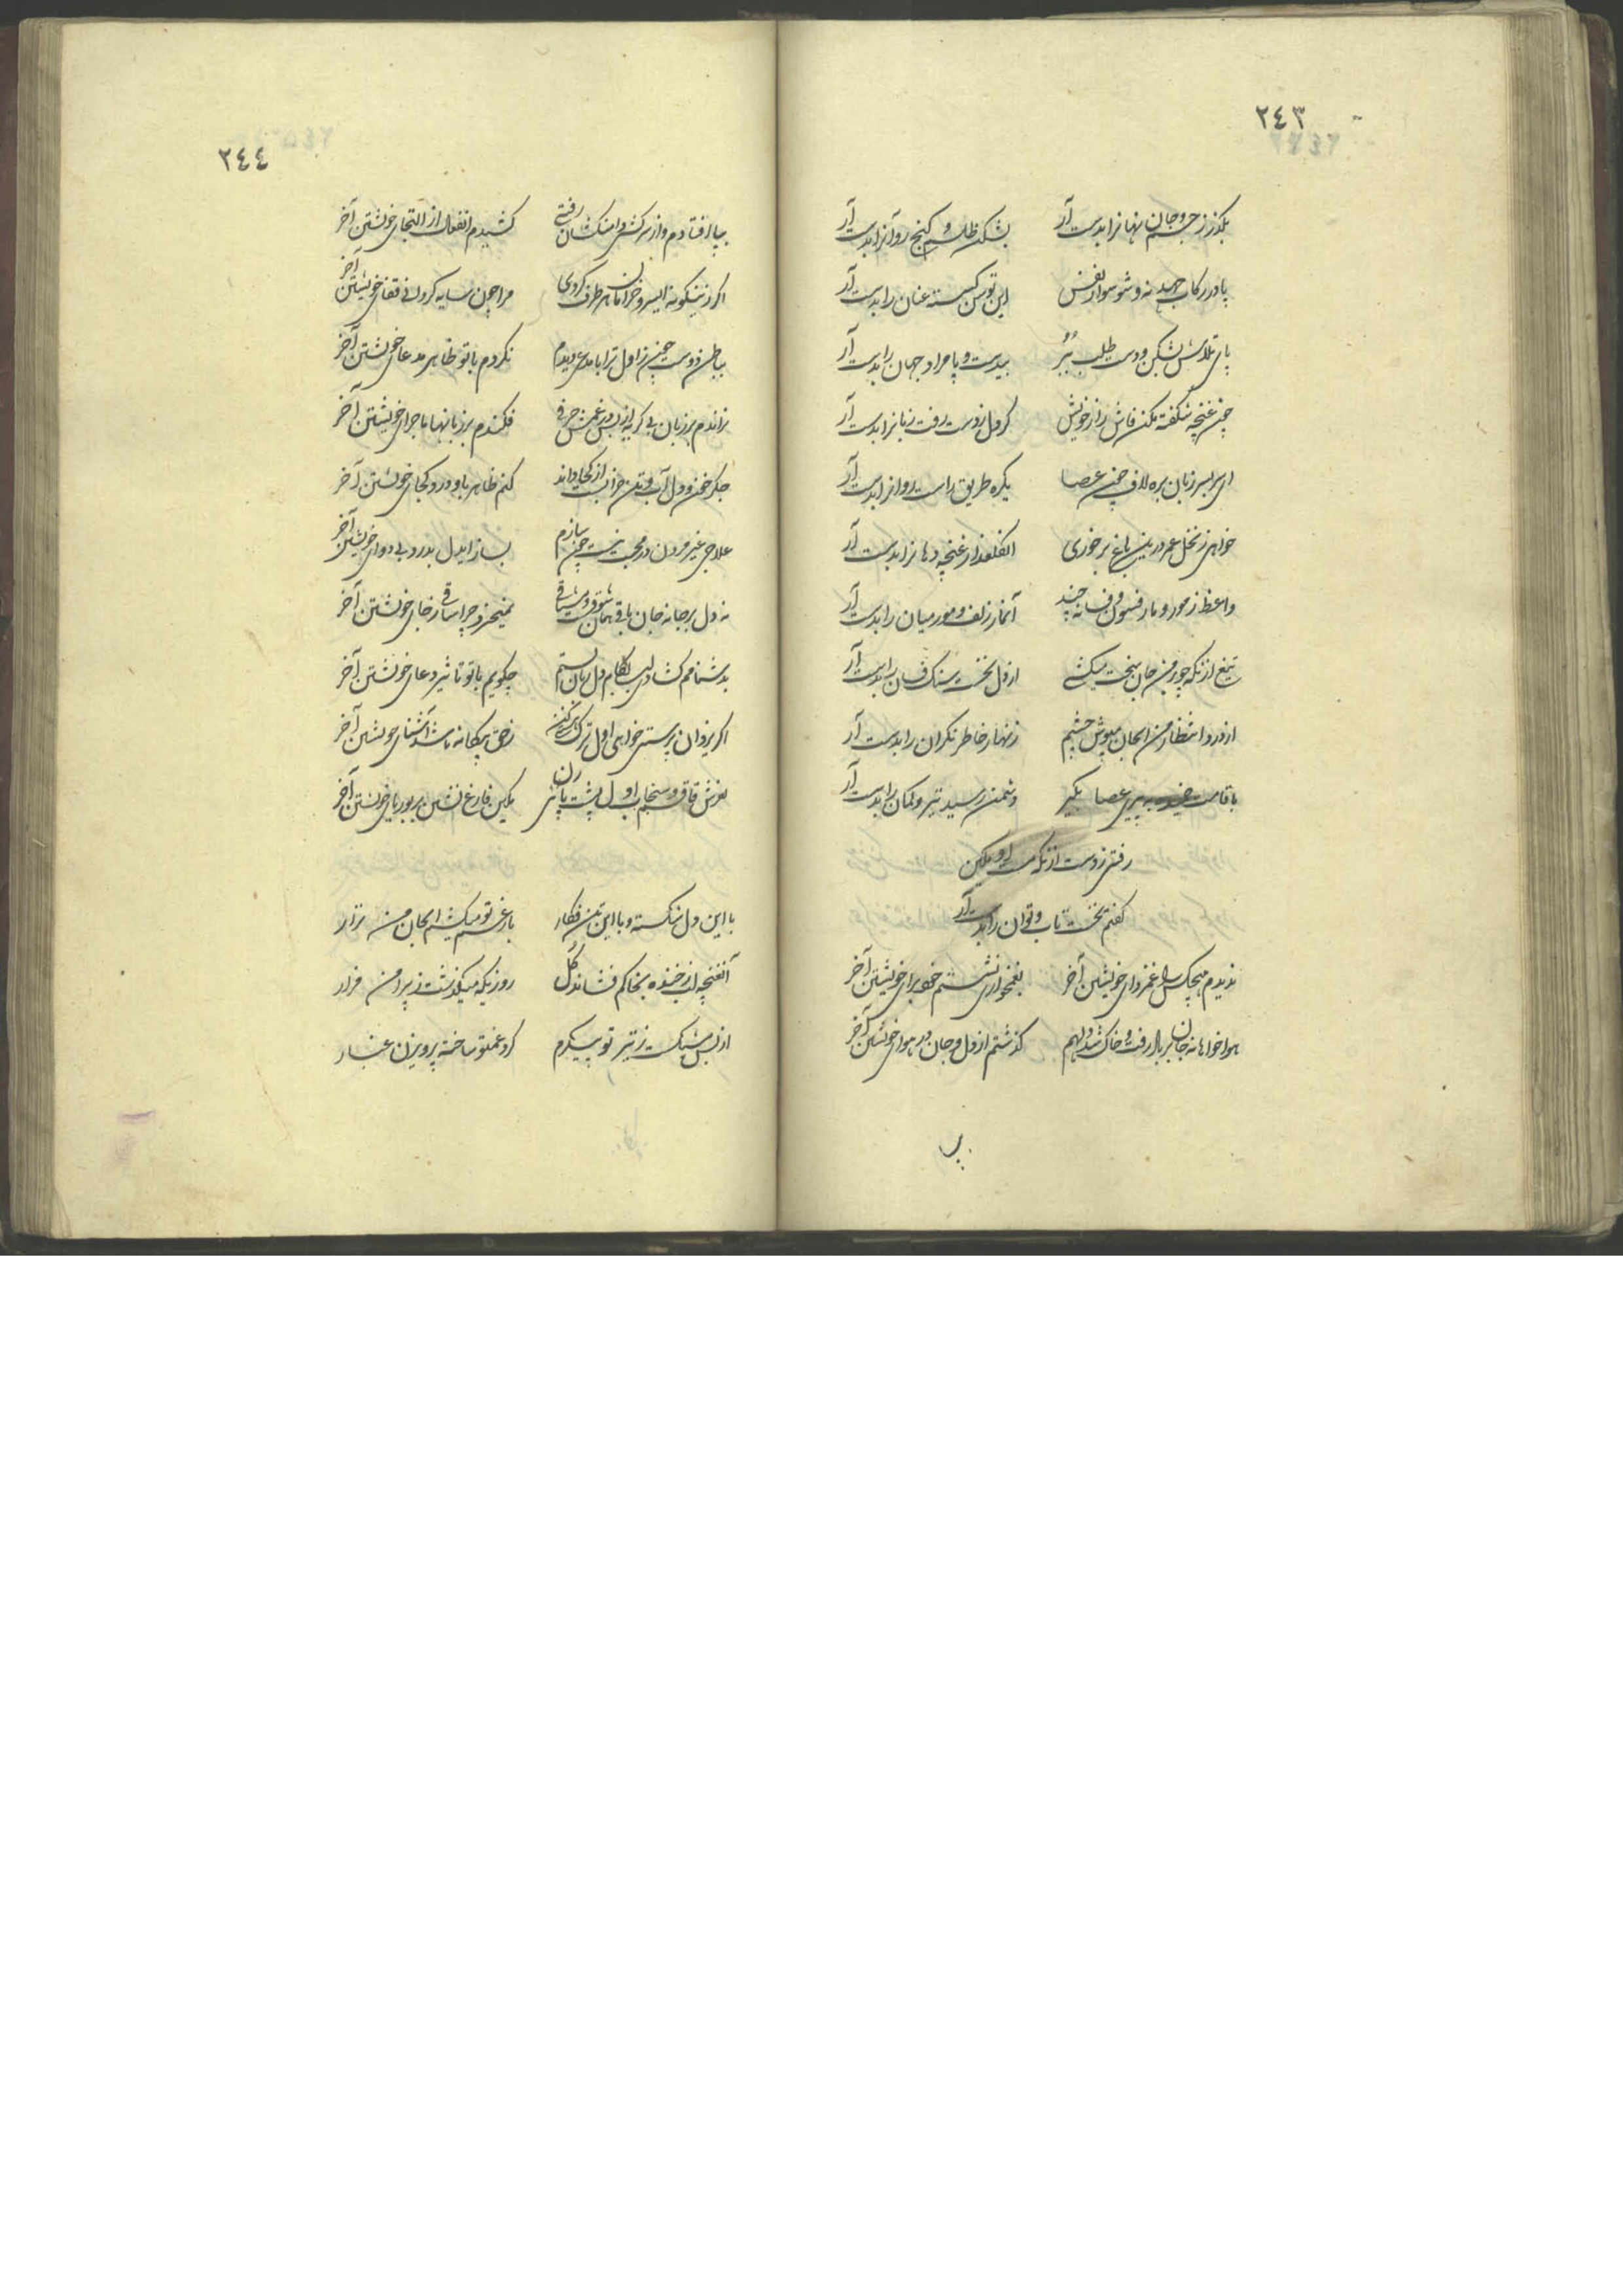 ٢٤٣
بکذر ز جسم و جان نهانرا بدست آر بشکن طلسم و کنج روانرا بدست آر
پا در رکاب جهد نه و شو سوار نفس این توسن کسسته عنان را بدست آر
پای تلاش بشکن و دست طلب ببُر بیدست و پا مراد جهان را بدست آر
چون غنچه شکفته مکن فاش راز خویش کر دل ز دست رفت زبانرا بدست آر
ای سر بسر زبان بره لاف چون عصا یکره طریق راست روانرا بدست آر
خواهی ز نخل عمر درین باغ بر خوری آن کلعذار غنچه دهانرا بدست آر
واعظ ز مور و مار فسون و فسانه چند آنمار زلف و مور میان را بدست آر
تیغ از نکه چو بر من جان سخت میکشی از دل نخست سنک فسان را بدست آر
از درد انتظار من ایجان مپوش چشم زنهار خاطر نکران را بدست آر
با قامت خمیده به پیری عصا بکیر دشمن رسید تیر و کمان را بدست آر
رفتی ز دست از نکه مست او
کفتم نخست تاب و توان را بدست آر
ندیدم هیچکس را غمزدای خویشتن آخر بغمخواری نشستم خود برای خویشتن آخر
هواخواهانه جان بر باد رفت و خاک شد دل هم کذشتم از دل و جان در هوای خویشتن آخر
بپا
٢٤٤
بپا افتادم و از سرکشی دامنکشان رفتی کشیدم انفعال از التجای خویشتن آخر
اکر زینکونه ای سرو خرامان هر طرف کردی مرا چون سایه کردانی فقای خویشتن آخر
بباطن دوست چون ز اول ترا با مدعی دیدم نکردم با تو ظاهر مدعای خویشتن آخر
نراندم بر زبان بی کریه از بس در غمش حرفی فکندم بر زبانها ماجرای خویشتن آخر
جکر خون و دل آب و تن خراب از کجا داند کنم ظاهر باو درد کجای خویشتن آخر
علاجی غیر مردن در محبت نیست چون سازم بساز ایدل بدرد بی دوای خویشتن آخر
نه دل بر جا نه جان باقی همان شوق و مشتاقی نمیخیزد چرا ساقی ز جای خویشتن آخر
بدشنامم کشادی لب بکام دل زبان بستم چکویم با تو تاثیر دعای خویشتن آخر
اکر یزدان پرستی خواهی اول ترک خود کن ز حق بیکانه باشد آشنای خویشتن آخر
بفرش قاقم و سنجاب اول پشت پا زن بکین فارغ نشین بر بوریای خویشتن آخر
با این دل شکسته و با این تن فکار بار غم تو میکشم ایجان من نزار
آنغنچه لب ز خنده بخاکم فشاند کُل روزیکه میکذشت ز پیرامن مزار
از بس مشبکست ز تیر تو پیکرم کرد غم تو ساخته پرویزن غبار